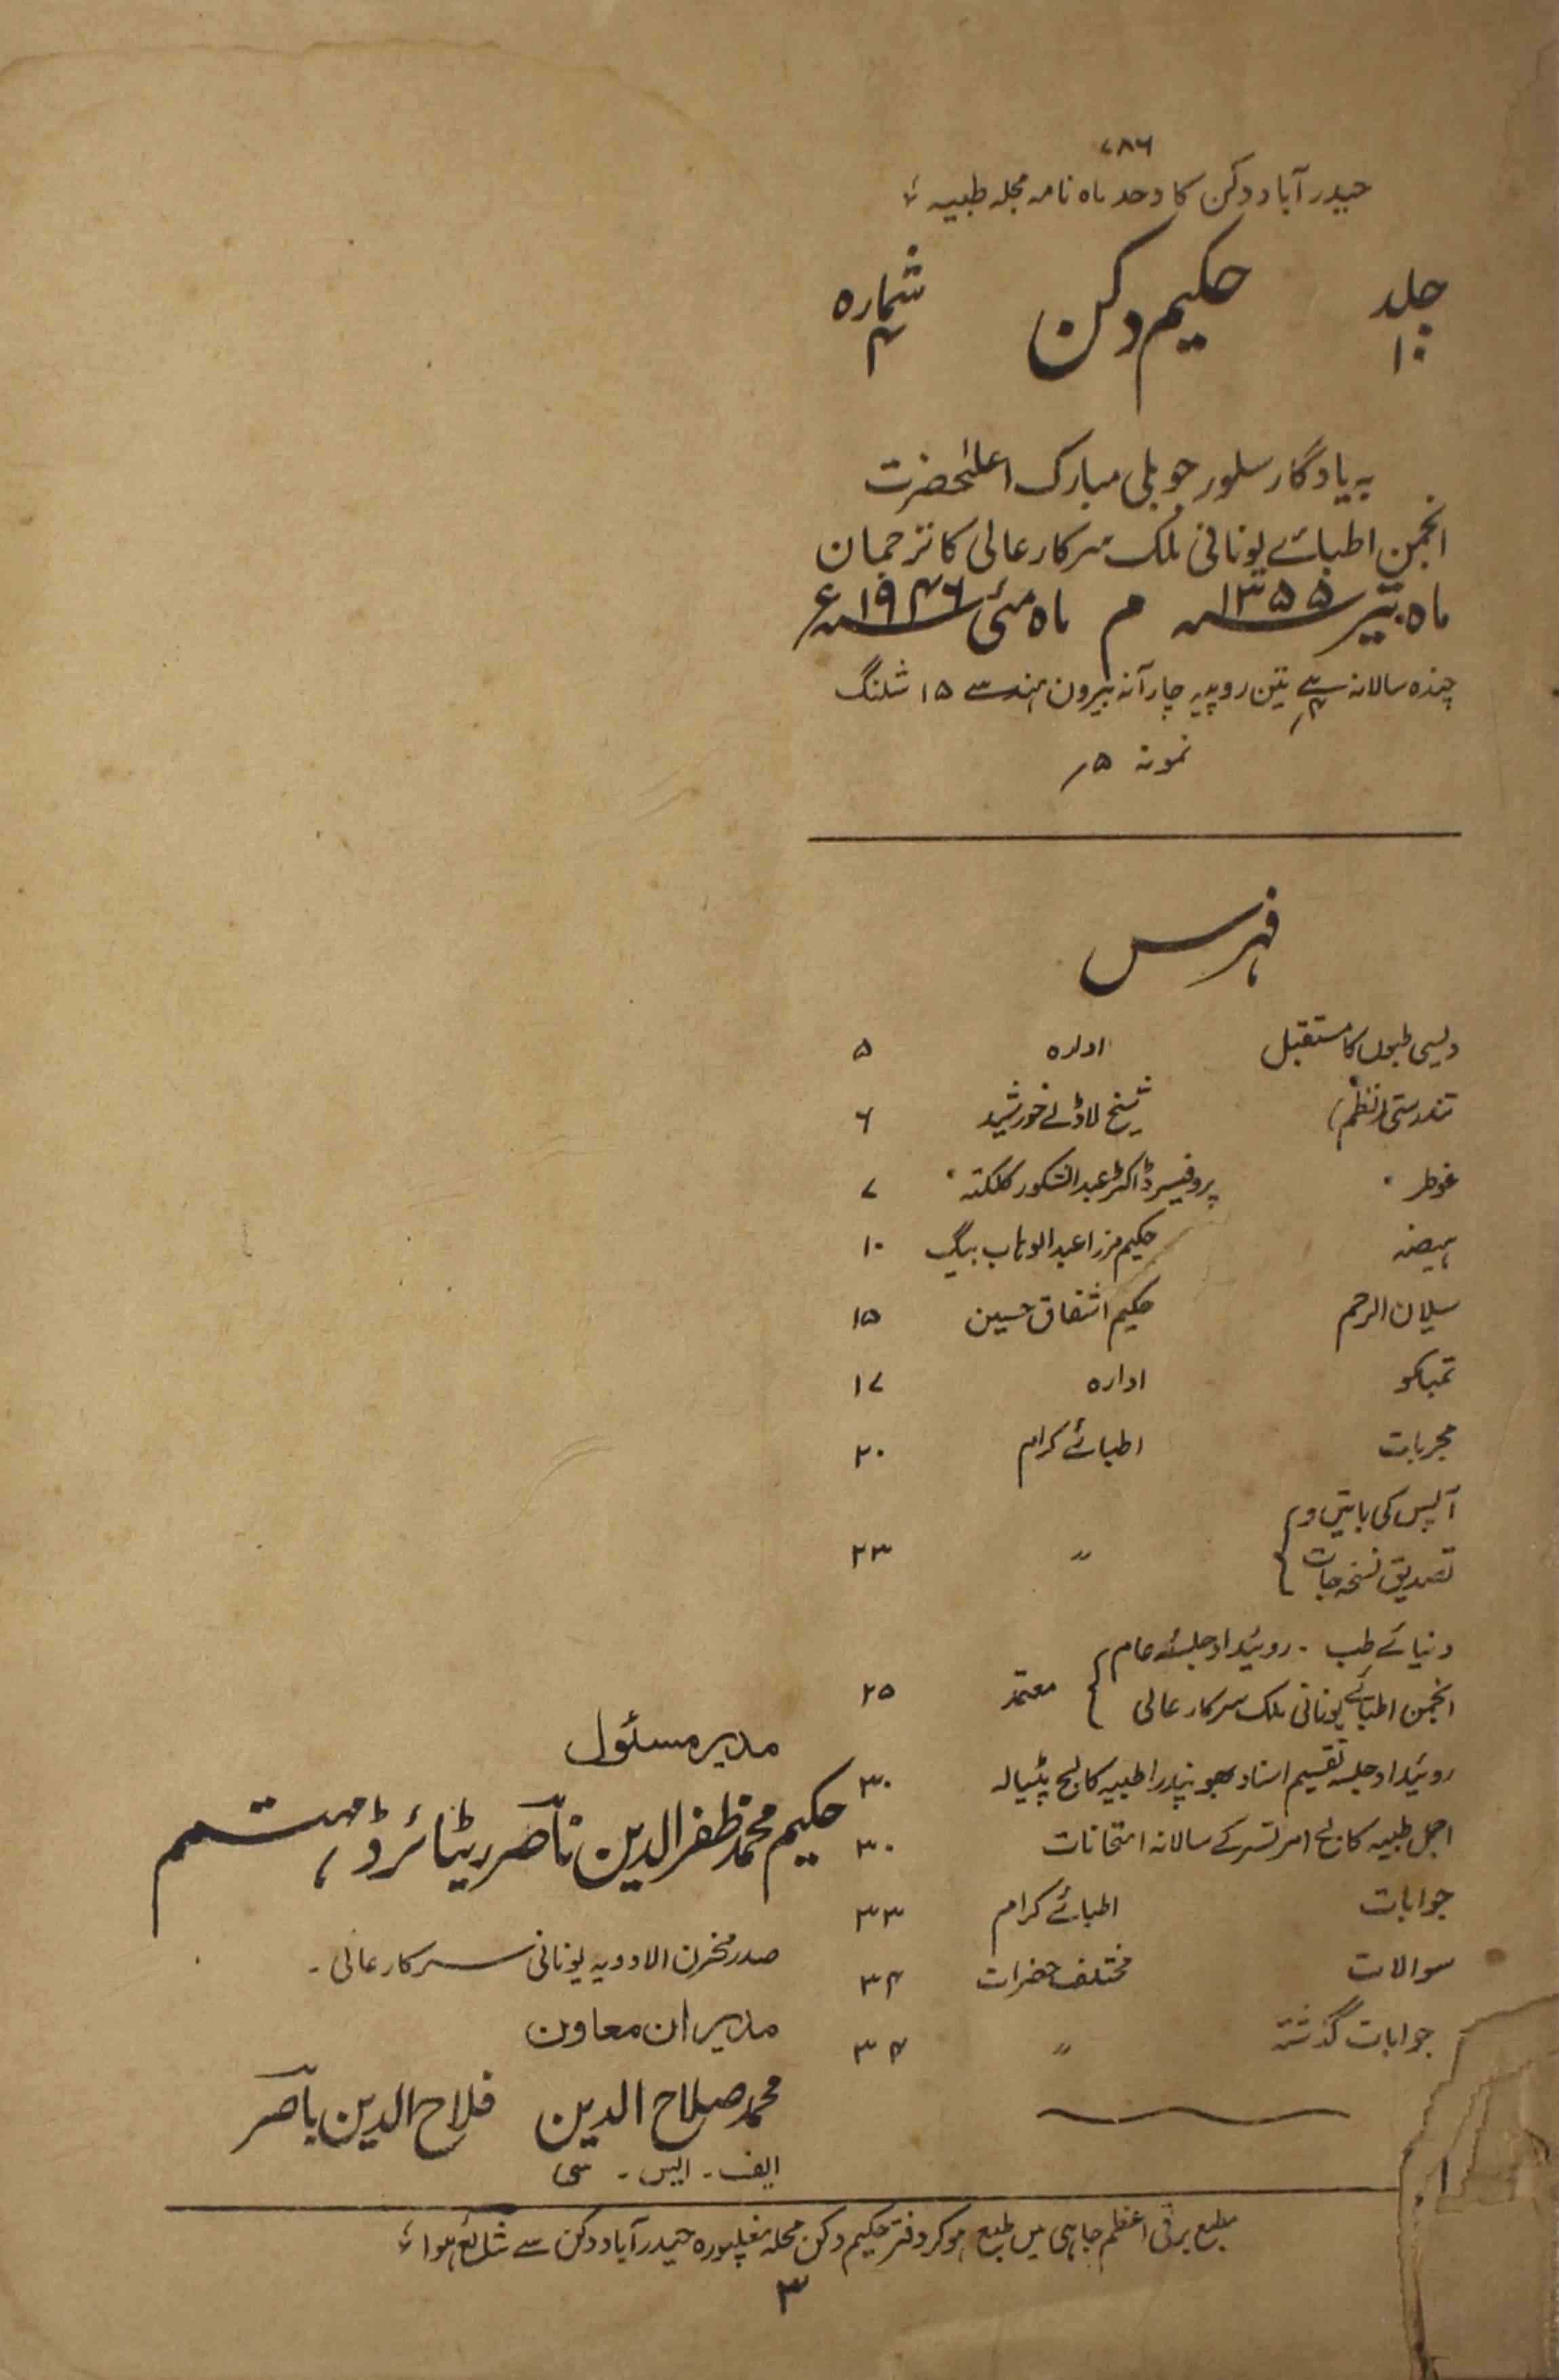 ۷۸۶
حیدرآباد دکن کا وحد ماہ نامہ مجلہ طبیہ
جلد ۱۰ حکیم دکن شمارہ ۴
بہ یادگار سلور جوبلی مبارک اعلٰحضرت
انجمن اطبائے یونانی ملک سرکار عالی کا ترجمان
ماہ تیر ۱۳۵۵ م ماہ مئی ۱۹۴۶ء
چندہ سالانہ تین روپیہ چار آنہ بیرون ہند سے ۱۵ شلنگ
نمونہ ۵؍
فہرس
دیسی طبوں کا مستقبل ادارہ ۵
تندرستی (نظم) شیخ لاڈلے خورشید ۶
غوطر پروفیسر ڈاکٹر عبدالشکور کلکتہ ۷
ہیضہ حکیم مرزا عبدالوہاب بیگ ۱۰
سیلان الرحم حکیم اشفاق حسین ۱۵
تمباکو ادارہ ۱۷
مجربات اطبائے کرام ۲۰
آپس کی باتیں و
تصدیق نسخہ جات 〃 ۲۳
دنیائے طب ۔ روئیداد جلسہ عام
انجمن اطبائے یونانی ملک سرکار عالی معتمد ۲۵
روئیداد جلسہ تقسیم اسناد بھوپندرا طبیہ کالج پٹیالہ ۳۰
اجمل طبیہ کالج امرتسر کے سالانہ امتحانات ۳۰
جوابات اطبائے کرام ۳۳
سوالات مختلف حضرات ۳۴
جوابات گذشتہ 〃 ۳۴
مدیر مسئول
حکیم محمد ظفر الدین ناصر ریٹائرڈ مہتمم
صدر مخزن الادویہ یونانی سرکار عالی ۔
مدیران معاون
محمد صلاح الدین فلاح الدین ناصر
ایف ۔ ایس ۔ سی
مطبع برقی اعظم جاہی میں طبع ہو کر دفتر حکیم دکن محلہ مغلپورہ حیدرآباد دکن سے شائع ہوا
۳